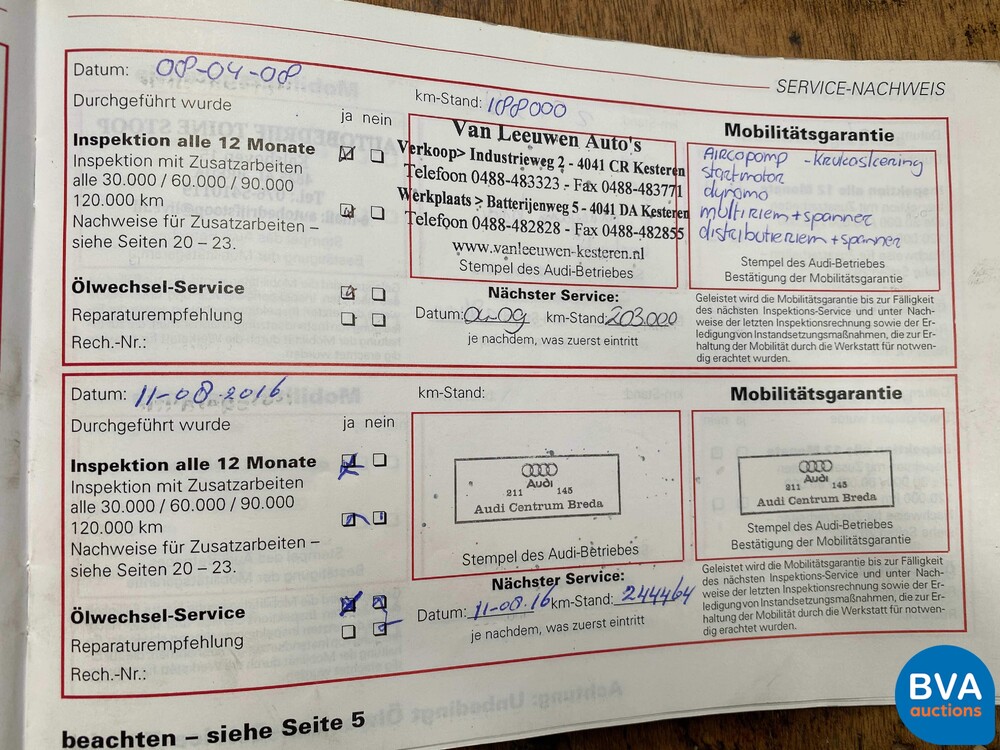 SERVICE-NACHWEIS
Datum: 08-04-08
Durchgeführt wurde
ja nein
Inspektion alle 12 Monate
Inspektion mit Zusatzarbeiten
alle 30.000 / 60.000 / 90.000
120.000 km
Nachweise für Zusatzarbeiten –
siehe Seiten 20 – 23.
Ölwechsel-Service
Reparaturempfehlung
Rech.-Nr.:
km-Stand: 188000
Van Leeuwen Auto's
Verkoop> Industrieweg 2 - 4041 CR Kesteren
Telefoon 0488-483323 - Fax 0488-483771
Werkplaats > Batterijenweg 5 - 4041 DA Kesteren
Telefoon 0488-482828 - Fax 0488-482855
www.vanleeuwen-kesteren.nl
Stempel des Audi-Betriebes
Nächster Service:
Datum: 04-09 km-Stand: 203.000
je nachdem, was zuerst eintritt
Mobilitätsgarantie
Aircopomp - Krukaskering
startmotor
dynamo
multiriem + spanner
distributieriem + spanner
Stempel des Audi-Betriebes
Bestätigung der Mobilitätsgarantie
Geleistet wird die Mobilitätsgarantie bis zur Fälligkeit
des nächsten Inspektions-Service und unter Nach-
weise der letzten Inspektionsrechnung sowie der Er-
ledigung von Instandsetzungsmaßnahmen, die zur Er-
haltung der Mobilität durch die Werkstatt für notwen-
dig erachtet wurden.
Datum: 11-08-2016
Durchgeführt wurde
ja nein
Inspektion alle 12 Monate
Inspektion mit Zusatzarbeiten
alle 30.000 / 60.000 / 90.000
120.000 km
Nachweise für Zusatzarbeiten –
siehe Seiten 20 – 23.
Ölwechsel-Service
Reparaturempfehlung
Rech.-Nr.:
km-Stand:
Audi
211 145
Audi Centrum Breda
Stempel des Audi-Betriebes
Nächster Service:
Datum: 11-08.16 km-Stand: 244464
je nachdem, was zuerst eintritt
Mobilitätsgarantie
Audi
211 145
Audi Centrum Breda
Stempel des Audi-Betriebes
Bestätigung der Mobilitätsgarantie
Geleistet wird die Mobilitätsgarantie bis zur Fälligkeit
des nächsten Inspektions-Service und unter Nach-
weise der letzten Inspektionsrechnung sowie der Er-
ledigung von Instandsetzungsmaßnahmen, die zur Er-
haltung der Mobilität durch die Werkstatt für notwen-
dig erachtet wurden.
beachten – siehe Seite 5
BVA
auctions